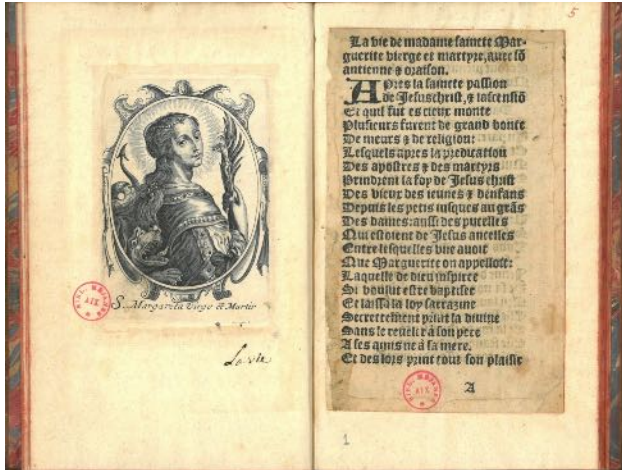 S. Margareta Virgo et Martir
La vie
5
La vie de madame saincte Mar-
guerite vierge et martyre, auec sõ
antienne ⁊ oraison.
Apres la saincte passion
de Jesuschrist, ⁊ lascensiõ
Et quil fut es cieux monte
Plusieurs furent de grand bonte
De meurs ⁊ de religion:
Lesquels apres la predication
Des apostres ⁊ des martyrs
Prindrent la foy de Jesus christ
Des vieux des ieunes ⁊ denfans
Depuis les petis iusques au grãs
Des dames: aussi des pucelles
Qui estoient de Jesus ancelles
Entre lesquelles vne auoit
Que Marguerite on appelloit:
Laquelle de dieu inspiree
Si voulut estre baptisee
Et laissa la loy sarrazine
Secrettement print la diuine
Sans le reueler à son pere
A ses amis ne à sa mere.
Et des lors print tout son plaisir
A
1